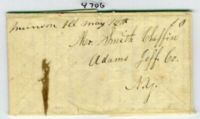 4706
Munson Ill May 16th
Mr. Smith Chaffin
Adams Jeff Co.
N.Y.